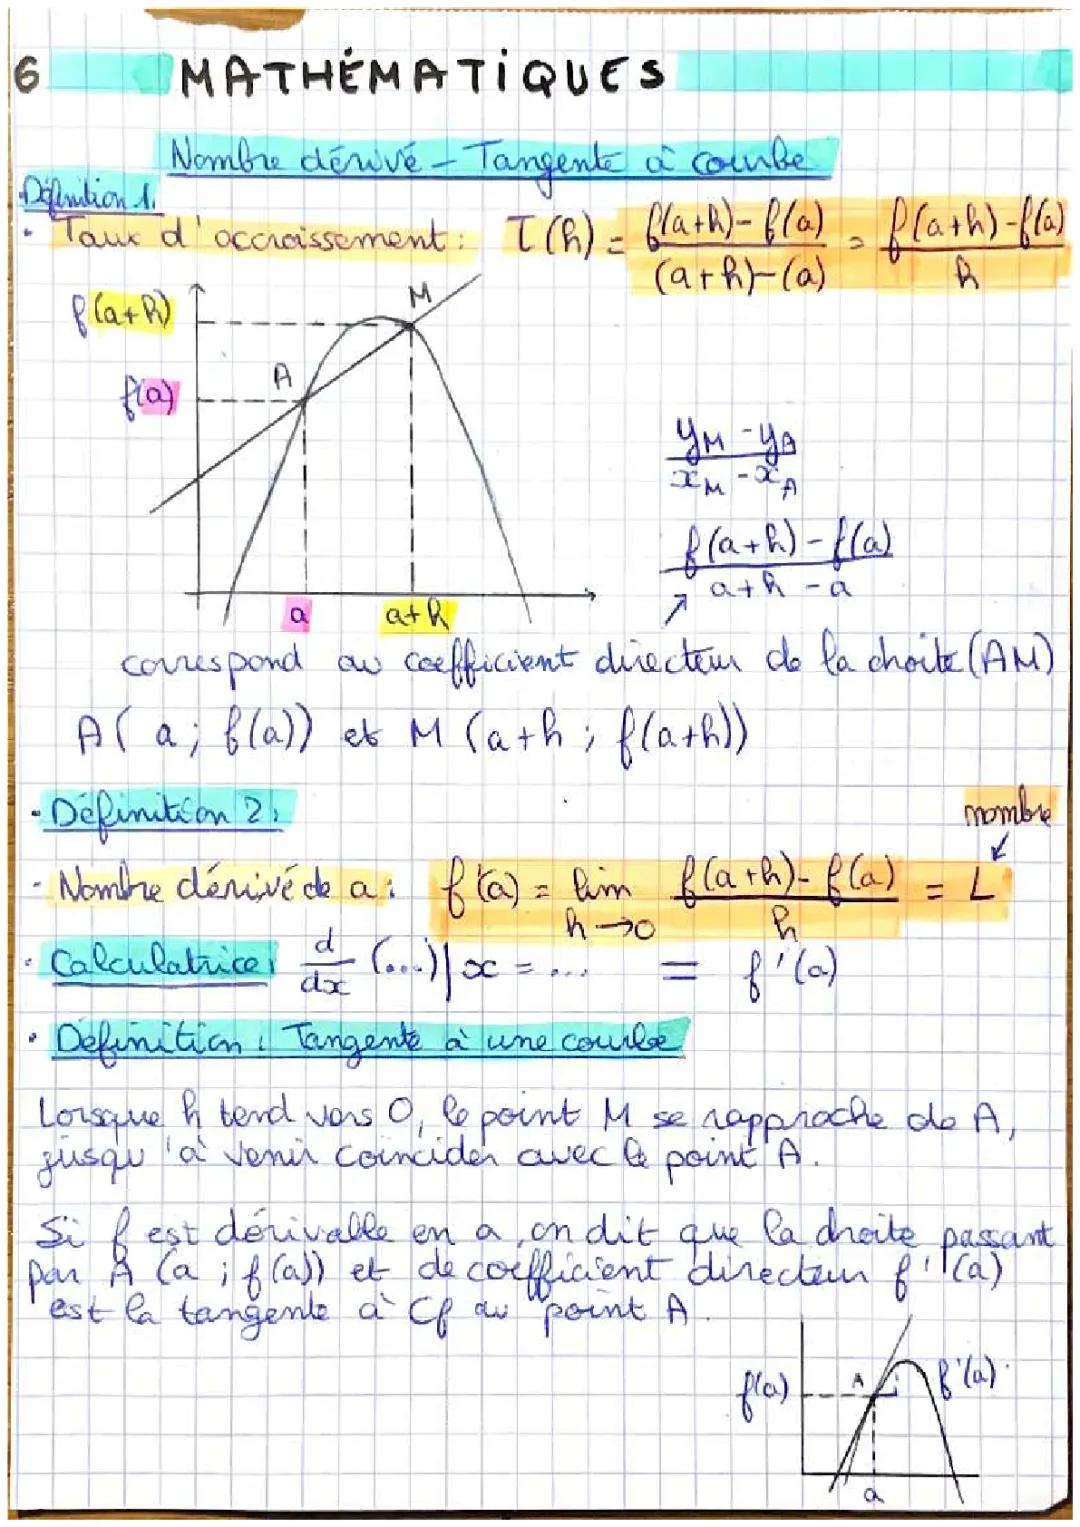 6 MATHÉMATIQUES
Nombre dérivé - Tangente à courbe
Définition 1.
• Taux d'accroissement : T(h) = f(a+h) - f(a) / (a+h)-(a) = f(a+h)-f(a) / h
f(a+h)
M
f(a)
A
yM - yA / xM - xA
f(a+h) - f(a) / a+h - a
a a+h
correspond au coefficient directeur de la droite (AM)
A( a ; f(a)) et M (a+h ; f(a+h))
• Définition 2 :
nombre
- Nombre dérivé de a : f'(a) = lim h→0 f(a+h) - f(a) / h = L
• Calculatrice : d/dx (...)| x = ... = f'(a)
• Définition : Tangente à une courbe
Lorsque h tend vers 0, le point M se rapproche de A,
jusqu'à venir coincider avec le point A.
Si f est dérivable en a, on dit que la droite passant
par A (a ; f(a)) et de coefficient directeur f'(a)
est la tangente à Cf au point A.
f(a) A f'(a)
a